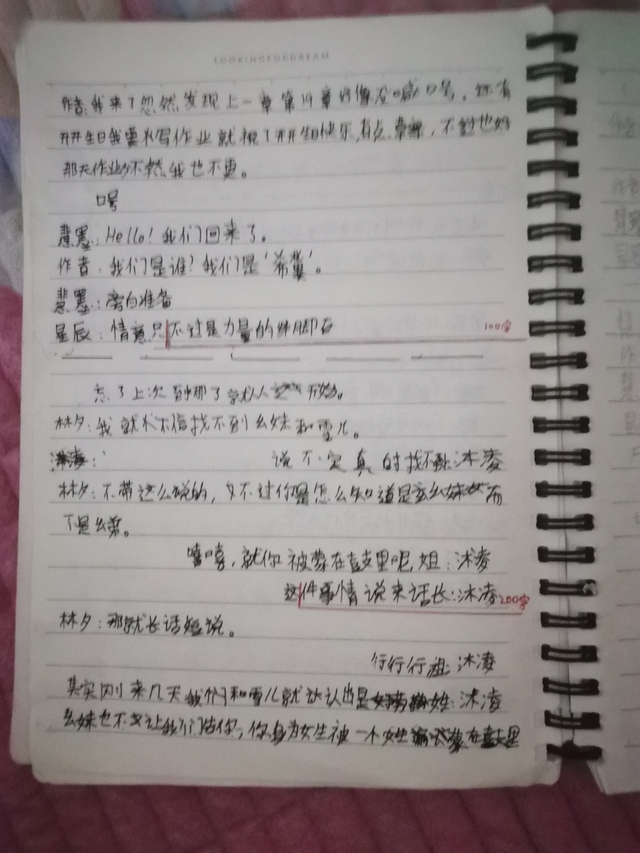 LOOKINGFORDREAM
作者:我来了忽然发现上一章第19章好像没喊口号,还有
开开生日我要水写作业就祝了开开生日快乐,有点,不过也好
那天作业多不然我也不更。
口号
慧墨:Hello!我们回来了。
作者:我们是谁?我们是'希冀'。
慧墨:旁白准备
星辰:情意只不过是力量的绊脚石 100字
忘了上次到哪了就从这开始。
林夕:我就不信找不到幺妹和雪儿。
说不定真的找不到:沐凌
林夕:不带这么说的,又不过你是怎么知道是幺妹而
不是幺弟。
嘻嘻,就你被蒙在鼓里呢,姐:沐凌
这件事情说来话长:沐凌 200字
林夕:那就长话短说。
行行行,姐:沐凌
其实刚来几天我们和雪儿就认出是:沐凌
幺妹也不让我们告你,你身为女生被一个女生蒙在鼓里